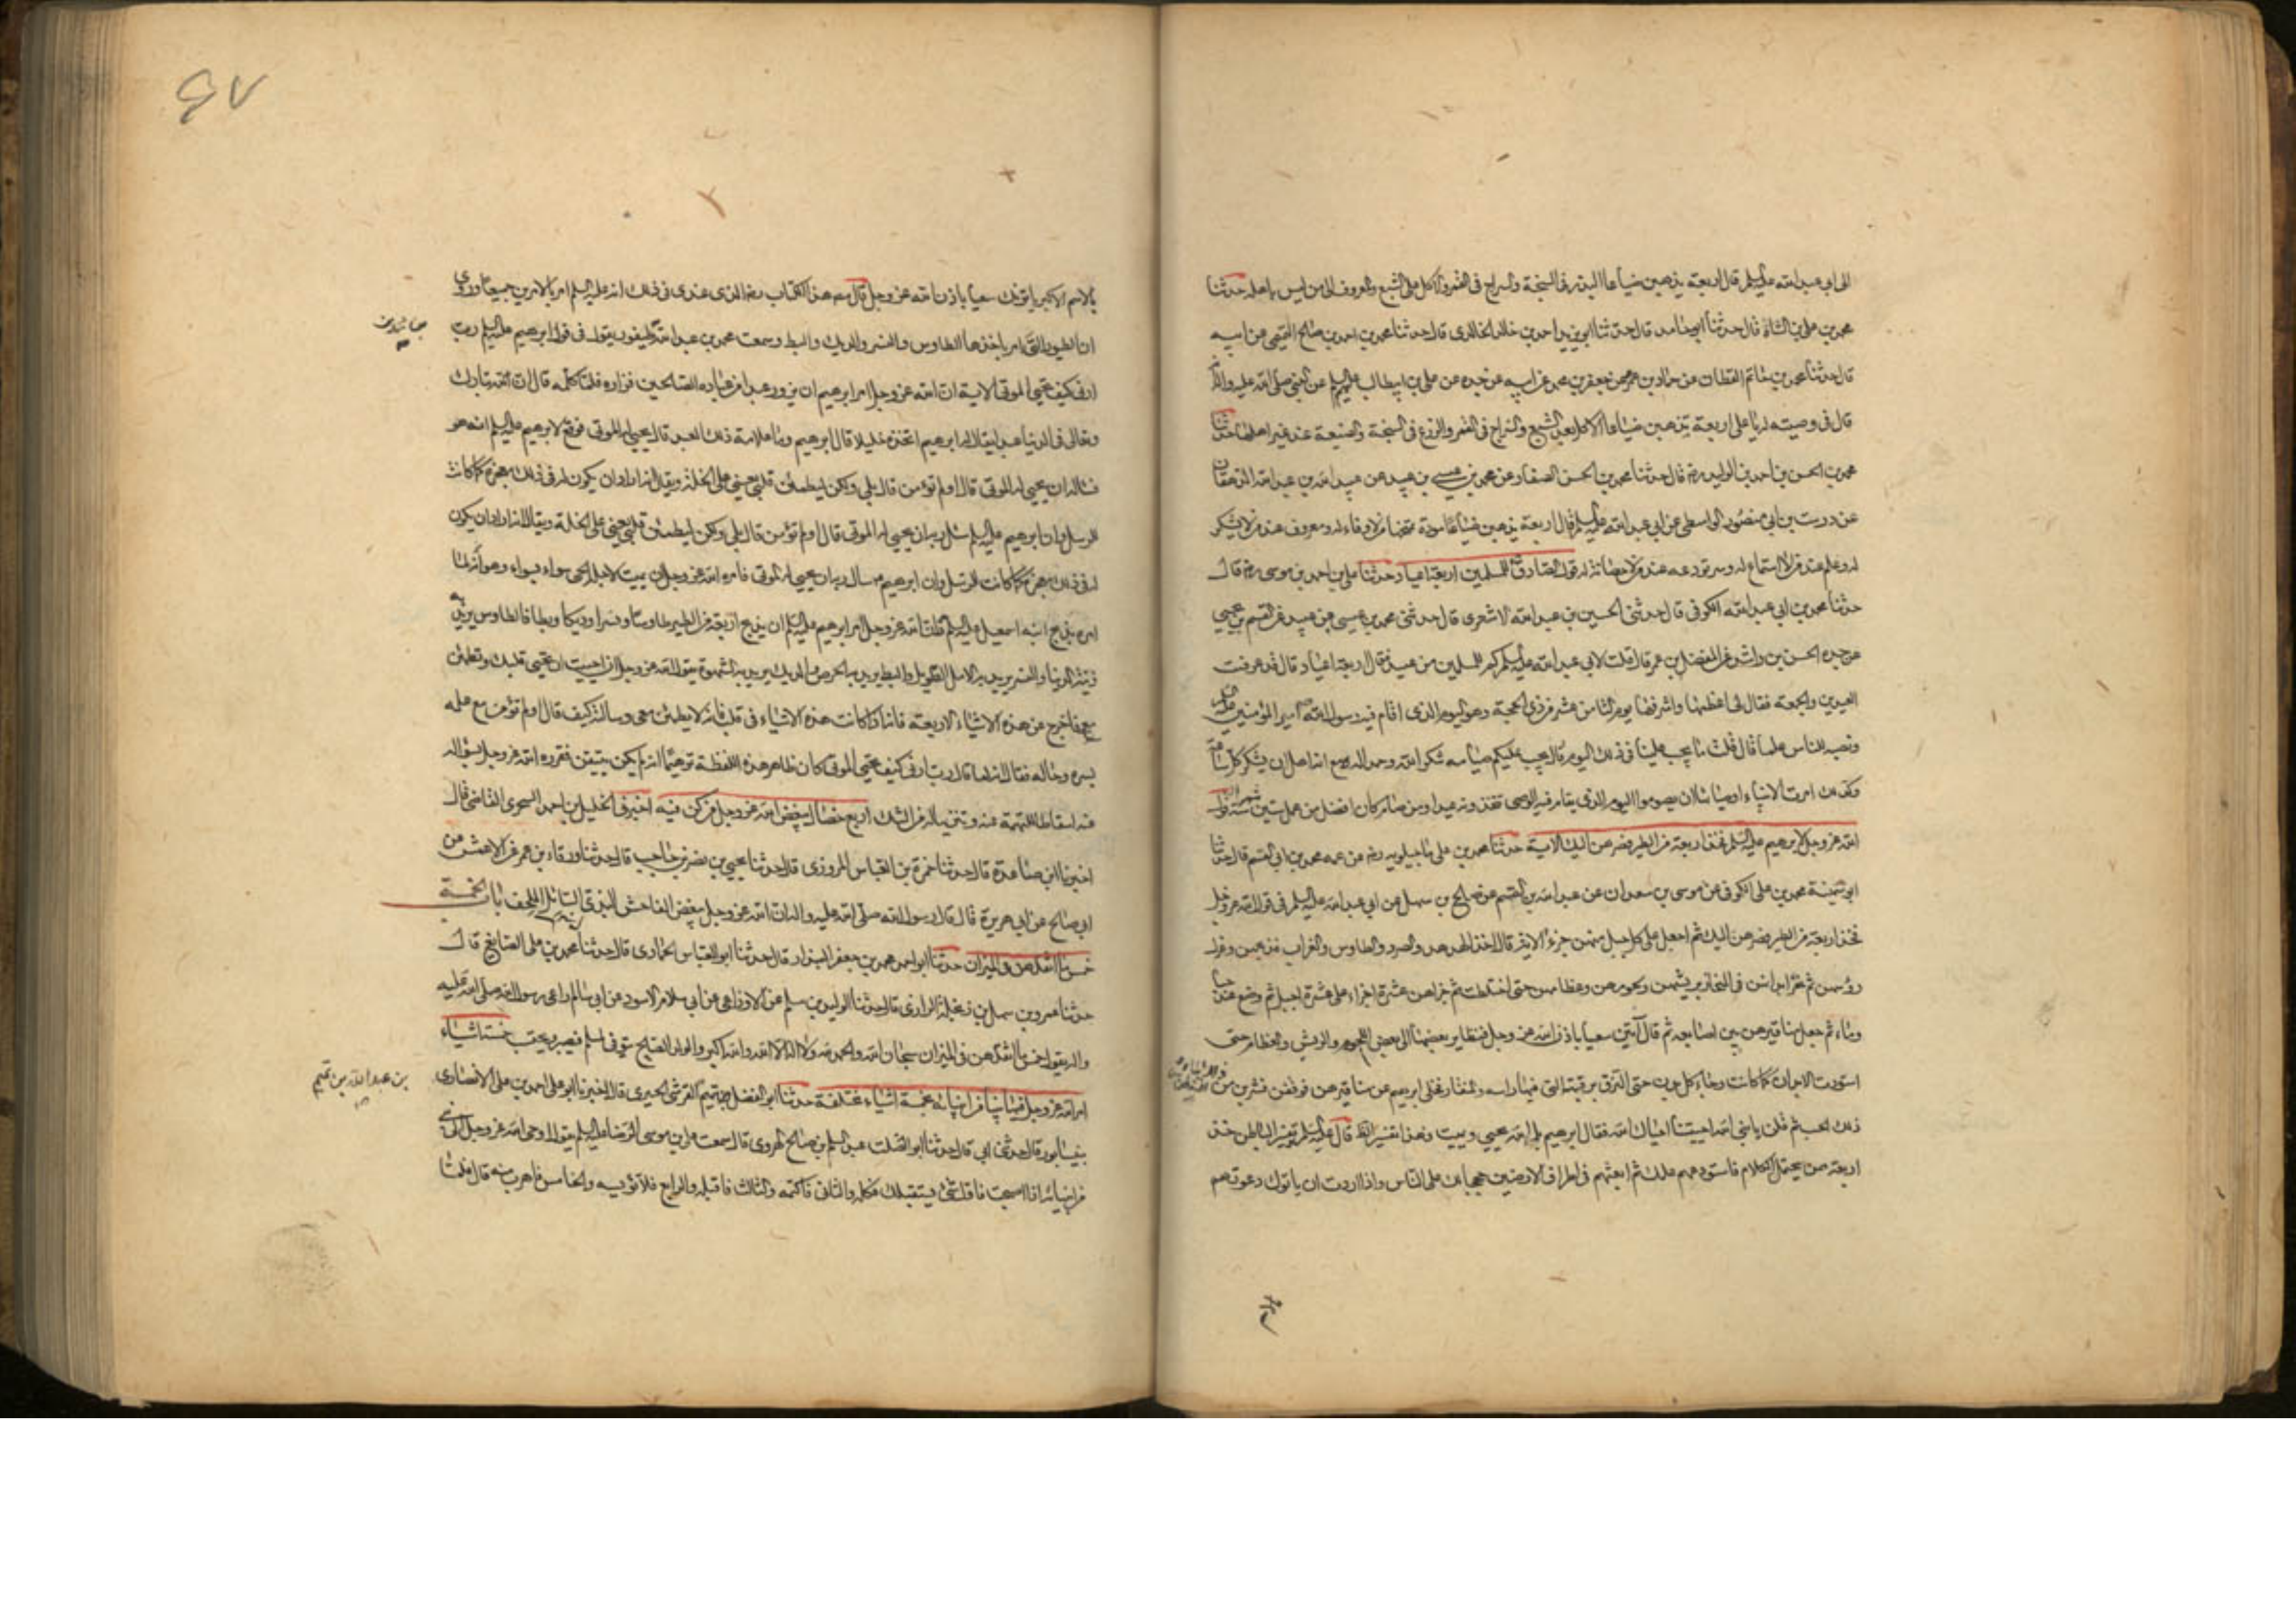 الى ابى عبد الله عليه السلم قال اربعة يذهبن ضياعا البذر فى السبخة والسراج فى القمر والاكل على الشبع والمعروف الى من ليس باهله حدثنا
محمد بن على بن الشاه قال حدثنا ابو حامد قال حدثنا ابو يزيد احمد بن خالد الخالدى قال حدثنا محمد بن احمد بن صالح التميمى عن ابيه
قال حدثنا محمد بن حاتم القطان عن حماد بن عمرو عن جعفر بن محمد عن ابيه عن جده عن على بن ابيطالب عليهم السلم عن النبى صلى الله عليه واله انه
قال فى وصيته له يا على اربعة يذهبن ضياعا الاكل بعد الشبع والسراج فى القمر والزرع فى السبخة والصنيعة عند غير اهلها حدثنا
محمد بن الحسن بن احمد بن الوليد رضه قال حدثنا محمد بن الحسن الصفار عن محمد بن عيسى بن عبيد عن عبيد الله بن عبد الله الدهقان
عن درست بن ابى منصور الواسطى عن ابى عبد الله عليه السلم قال اربعة يذهبن ضياعا مودة تمنحها من لا وفاء له ومعروف عند من لا يشكر
له وعلم عند من لا استماع له وسر تودعه عند من لا حصانة له قول الصادق للمسلمين اربعة اعياد حدثنا على بن احمد بن موسى رضه قال
حدثنا محمد بن ابى عبد الله الكوفى قال حدثنى الحسين بن عبد الله الاشعرى قال حدثنى محمد بن عيسى بن عبيد عن القسم بن يحيى
عن جده الحسن بن راشد عن المفضل بن عمر قال قلت لابى عبد الله عليه السلم كم للمسلمين من عيد فقال اربعة اعياد قال قد عرفت
العيدين والجمعة فقال لى اعظمها واشرفها يوم الثامن عشر من ذى الحجة وهو اليوم الذى اقام فيه رسول الله امير المؤمنين
ونصبه للناس علما قال قلت ما يجب علينا فى ذلك اليوم قال يجب عليكم صيامه شكرا لله وحمدا له مع انه اهل ان يشكر كل ساعة
وكذلك امرت الانبياء اوصياءها ان يصوموا اليوم الذى يقام فيه الوصى تتخذونه عيدا ومن صامه كان افضل من عمل ستين سنة قول
الله عز وجل لابرهيم عليه السلم فخذ اربعة من الطير فصرهن اليك الاية حدثنا محمد بن على ماجيلويه رضه عن عمه محمد بن ابى القسم قال حدثنا
ابو سمينة محمد بن على الكوفى عن موسى بن سعدان عن عبد الله بن القسم عن صالح بن سهل عن ابى عبد الله عليه السلم فى قول الله عز وجل
فخذ اربعة من الطير فصرهن اليك ثم اجعل على كل جبل منهن جزءا الاية قال اخذ الهدهد والصرد والطاوس والغراب فذبحهن وعزل
رؤسهن ثم نحز ابدانهن فى المنحاز بريشهن ولحومهن وعظامهن حتى اختلطت ثم جزاهن عشرة اجزاء على عشرة اجبل ثم وضع عنده حبا
وماء ثم جعل مناقيرهن بين اصابعه ثم قال ائتين سعيا باذن الله عز وجل فتطاير بعضها الى بعض اللحوم والريش والعظام حتى
استوت الابدان كما كانت وجاء كل بدن حتى التزق برقبته التى فيها راسه والمنقار فخلى ابرهيم عن مناقيرهن فوقعن فشربن من
ذلك الحب ثم قلن يا نبى الله احييتنا احياك الله فقال ابرهيم بل الله يحيى ويميت فهذا تفسير الظاهر قال عليه السلم وتفسيره فى الباطن خذ
اربعة ممن يحتمل الكلام فاستودعهم علمك ثم ابعثهم فى اطراف الارضين حججا لك على الناس واذا اردت ان ياتوك دعوتهم
٤٧
بالاسم الاكبر ياتونك سعيا باذن الله عز وجل قال مصنف هذا الكتاب رضه الذى عندى فى ذلك انه عليه السلم امر بالامرين جميعا وروى
ان الطيور التى امر باخذها الطاوس والنسر والديك والبط وسمعت محمد بن عبد الله بن طيفور يقول فى قول ابرهيم عليه السلم رب
ارنى كيف تحيى الموتى الاية ان الله عز وجل امر ابرهيم ان يزور عبدا من عباده الصالحين فزاره فلما كلمه قال ان لله تبارك
وتعالى فى الدنيا عبدا يقال له ابرهيم اتخذه خليلا قال ابرهيم وما علامة ذلك العبد قال يحيى له الموتى فوقع لابرهيم عليه السلم انه هو
فساله ان يحيى له الموتى قال اولم تؤمن قال بلى ولكن ليطمئن قلبى يعنى على الخلة ويقال انه اراد ان يكون له فى ذلك معجزة كما كانت
للرسل وان ابرهيم عليه السلم سئل ربه ان يحيى له الموتى قال اولم تؤمن قال بلى ولكن ليطمئن قلبى يعنى على الخلة ويقال انه اراد ان يكون
له فى ذلك معجزة كما كانت للرسل وان ابرهيم سال ربه ان يحيى له الموتى فامره الله عز وجل ان يميت لاجله الحى سواء بسواء وهو انه لما
امره بذبح ابنه اسمعيل عليه السلم قلت الله عز وجل امر ابرهيم عليه السلم ان يذبح اربعة من الطير طاوسا ونسرا وديكا وبطا فالطاوس يريد به
زينة الدنيا والنسر يريد به الامل الطويل والبط يريد به الحرص والديك يريد به الشهوة يقول الله عز وجل ان احببت ان تحيى قلبك وتطمئن
معى فاخرج عن هذه الاشياء الاربعة فانه اذا كانت هذه الاشياء فى قلب فانه لا يطمئن معى وسالته كيف قال اولم تؤمن مع علمه
بسره وحاله فقال انه لما قال رب ارنى كيف تحيى الموتى كان ظاهر هذه اللفظة توهم انه لم يكن بيقين فقرره الله عز وجل بسؤاله
عنه اسقاطا للتهمة عنه وتنزيها له من الشك اربع خصال يبغض الله عز وجل من كن فيه اخبرنى الخليل بن احمد السجزى القاضى قال
اخبرنا ابن صاعدة قال حدثنا حمزة بن العباس المروزى قال حدثنا يحيى بن نصر بن حاجب قال حدثنا ورقاء بن عمر عن الاعمش عن
ابى صالح عن ابى هريرة قال قال رسول الله صلى الله عليه واله ان الله عز وجل يبغض الفاحش البذى السائل الملحف باب الخمسة
خمس ما اثقلهن فى الميزان حدثنا ابو احمد محمد بن جعفر البندار قال حدثنا ابو العباس الحمادى قال حدثنا محمد بن على الصايغ قال
حدثنا عمرو بن سهل بن زنجلة الرازى قال حدثنا الوليد بن مسلم عن الاوزاعى عن ابى سلام الاسود عن ابى سالم راعى رسول الله صلى الله عليه
واله يقول خمس ما اثقلهن فى الميزان سبحان الله والحمد لله ولا اله الا الله والله اكبر والولد الصالح يتوفى لمسلم فيصبر ويحتسب خمسة اشياء
امر الله عز وجل فيها نبيا من انبيائه بخمسة اشياء مختلفة حدثنا ابو الفضل تميم القرشى الحيرى قال اخبرنا ابو على احمد بن على الانصارى
بن عبد الله بن تميم
بنيسابور قال حدثنى ابى قال حدثنا ابو الصلت عبد السلم بن صالح الهروى قال سمعت على بن موسى الرضا عليه السلم يقول اوحى الله عز وجل الى نبى
من انبيائه اذا اصبحت فاول شئ يستقبلك فكله والثانى فاكتمه والثالث فاقبله والرابع فلا تؤيسه والخامس فاهرب منه قال فلما